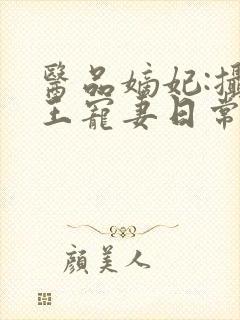 醫品嫡妃:攝
王寵妻日常
顏美人